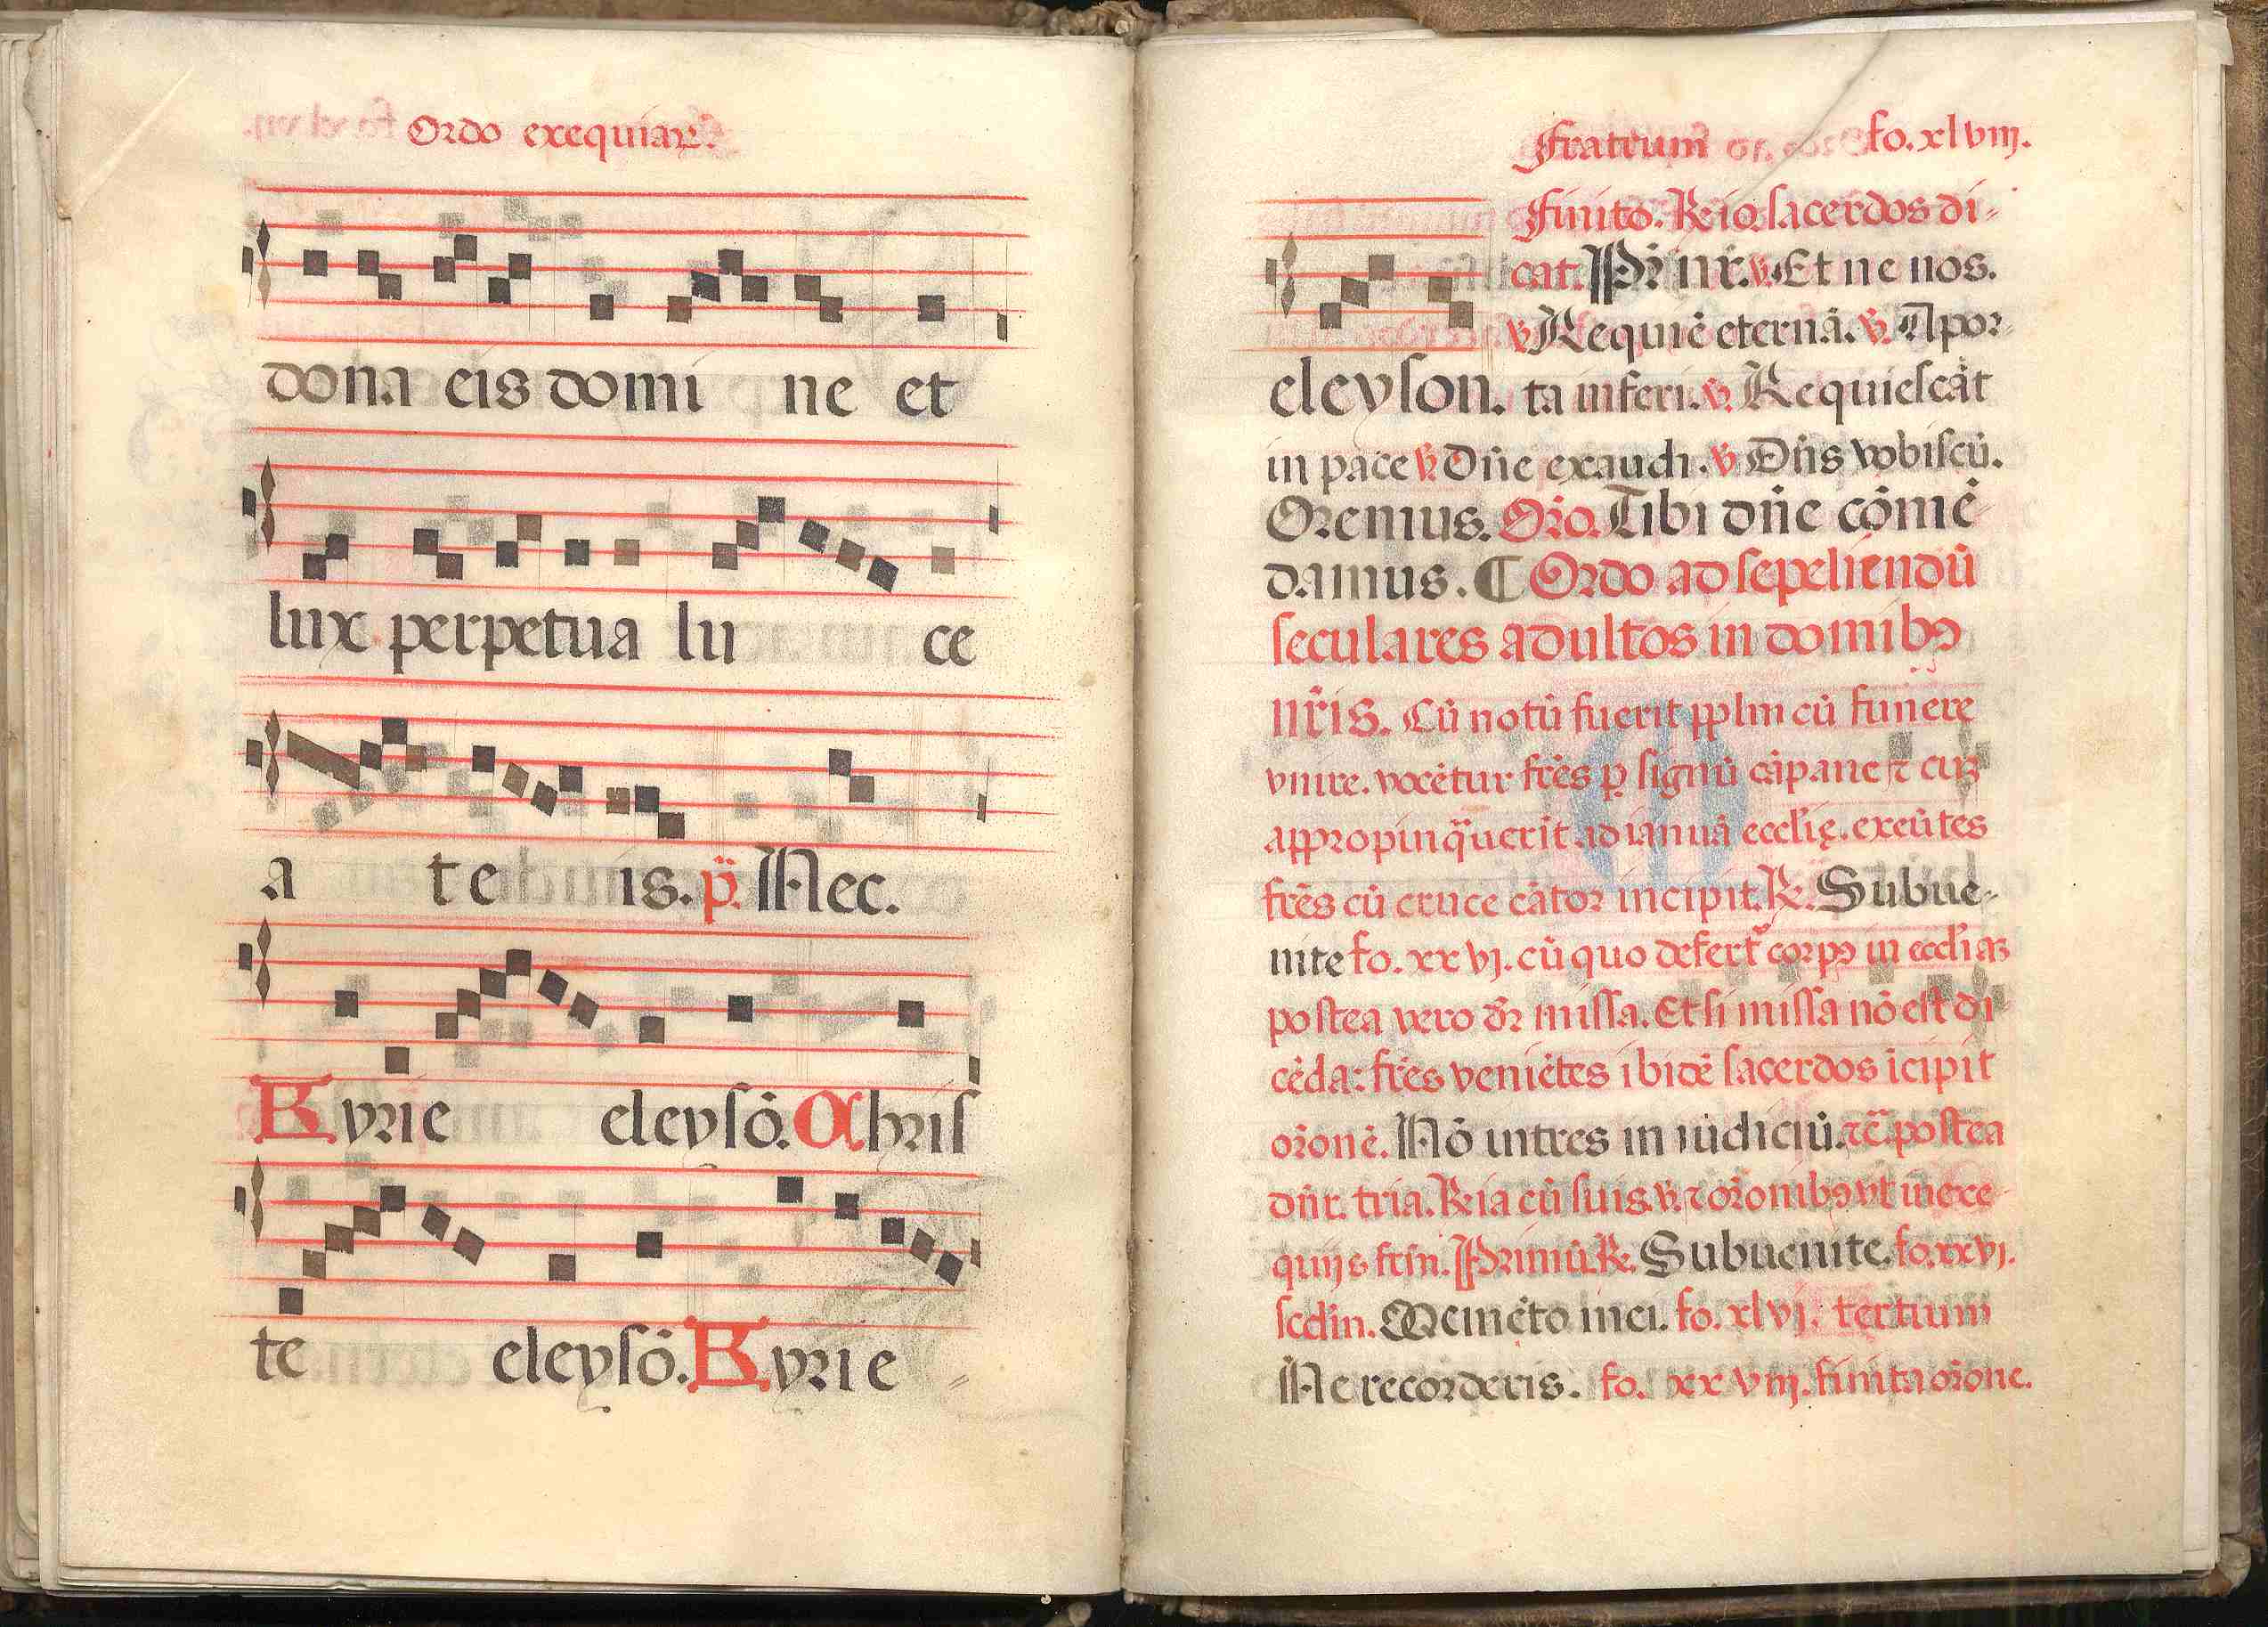 Ordo exequiaꝝ.
dona eis domi ne et
lux perpetua lu ce
a te is. p̈. Nec.
Kyrie eleysō. Chris
te eleysō. Kyrie
fratrum fo. xlviij.
finito. ℟io sacerdos di-
cat. Pr̄ nr̄. ℣. Et ne nos.
℣ Requiē eternā. ℣. A por-
eleyson. ta inferi. ℣. Requiescāt
in pace ℣. Dn̄e exaudi. ℣ Dn̄s vobiscū.
Oremus. Or̄o. Tibi dn̄e cōmē
damus. ¶ Ordo ad sepeliendū
seculares adultos in domibꝰ
nr̄is. Cū notū fuerit pplm cū funere
vnire. vocētur fr̄es ꝑ signū cāpane ⁊ cū
appropinq̄uerit ad ianuā eccl̄ię. exeūtes
fr̄es cū cruce cātor incipit. ℟. Subue-
nite fo. xxvj. cū quo defert̄ corpꝰ in eccl̄iaꝫ
postea vero dr̄ missa. Et si missa nō est di
cēda: fr̄es veniētes ibidē sacerdos īcipit
or̄onē. Nō intres in iūdiciū. ⁊c̄. postea
dn̄r. tria. ℟ia cū suis ℣. ⁊ or̄onibꝰ vt in exe
quijs fr̄m. Primū ℟. Subuenite. fo. xxvj.
sc̄dm. Memēto mei. fo. xlvj. tertium
Ne recorderis. fo. xxviij. finita or̄one.